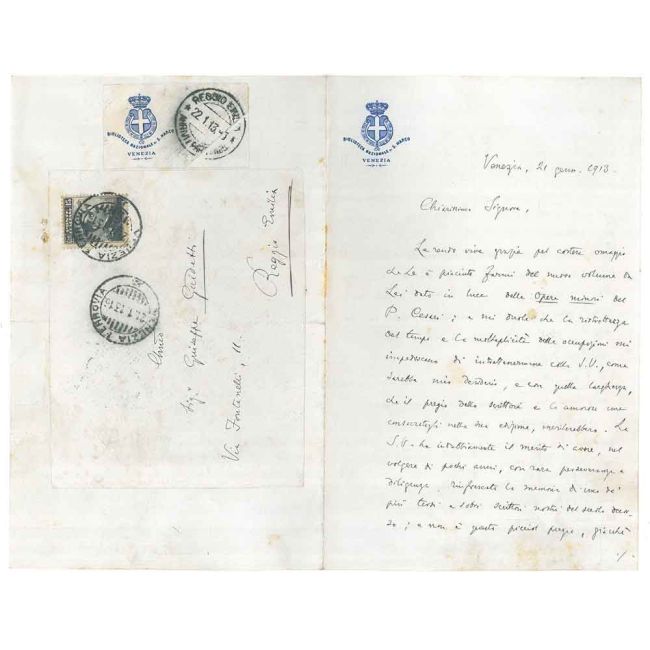 BIBLIOTECA NAZIONALE DI S. MARCO
VENEZIA
REGGIO EMILIA
22.1.13
VENEZIA FERROVIA
VENEZIA FERROVIA
Chmo
Sigr Giuseppe Guidetti
Via Fontanelli, 11.
Reggio Emilia
BIBLIOTECA NAZIONALE DI S. MARCO
VENEZIA
Venezia, 21 genn. 1913.
Chiarissimo Signore,
La rendo vive grazie pel cortese omaggio
che Le è piaciuto farmi del nuovo volume da
Lei dato in luce delle Opere minori del
P. Cesari; e mi duole che la ristrettezza
del tempo e la molteplicità delle occupazioni mi
impediscano di intrattenermene colla S.V., come
sarebbe mio desiderio, e con quella larghezza,
che il pregio dello scrittore e le amorose cure
consacrategli nella sua edizione, meriterebbero. La
S.V. ha indubbiamente il merito di avere, nel
volgere di pochi anni, con rara perseveranza e
diligenza, rinfrescata la memoria di uno de'
più tersi e sobri scrittori nostri del secolo decor-
so; e non è questo piccol pregio, giacchè
./.